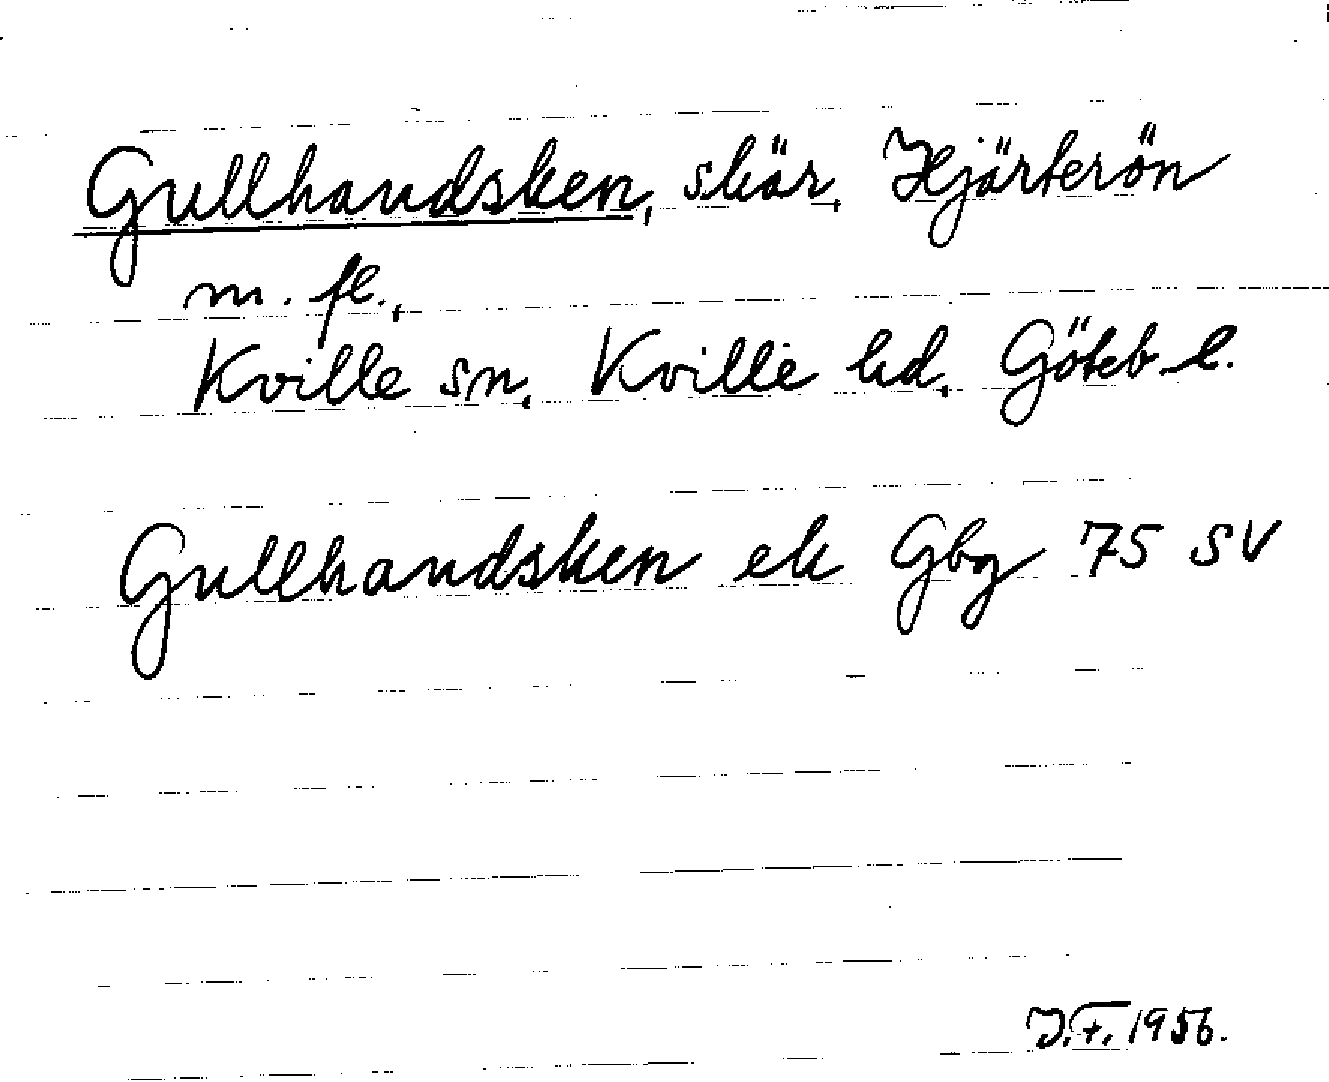 Gullhandsken, skär, Hjärterön
m. fl.,
Kville sn, Kville hd, Göteb. l.
Gullhandsken ek Gbg 75 SV
J.F. 1956.